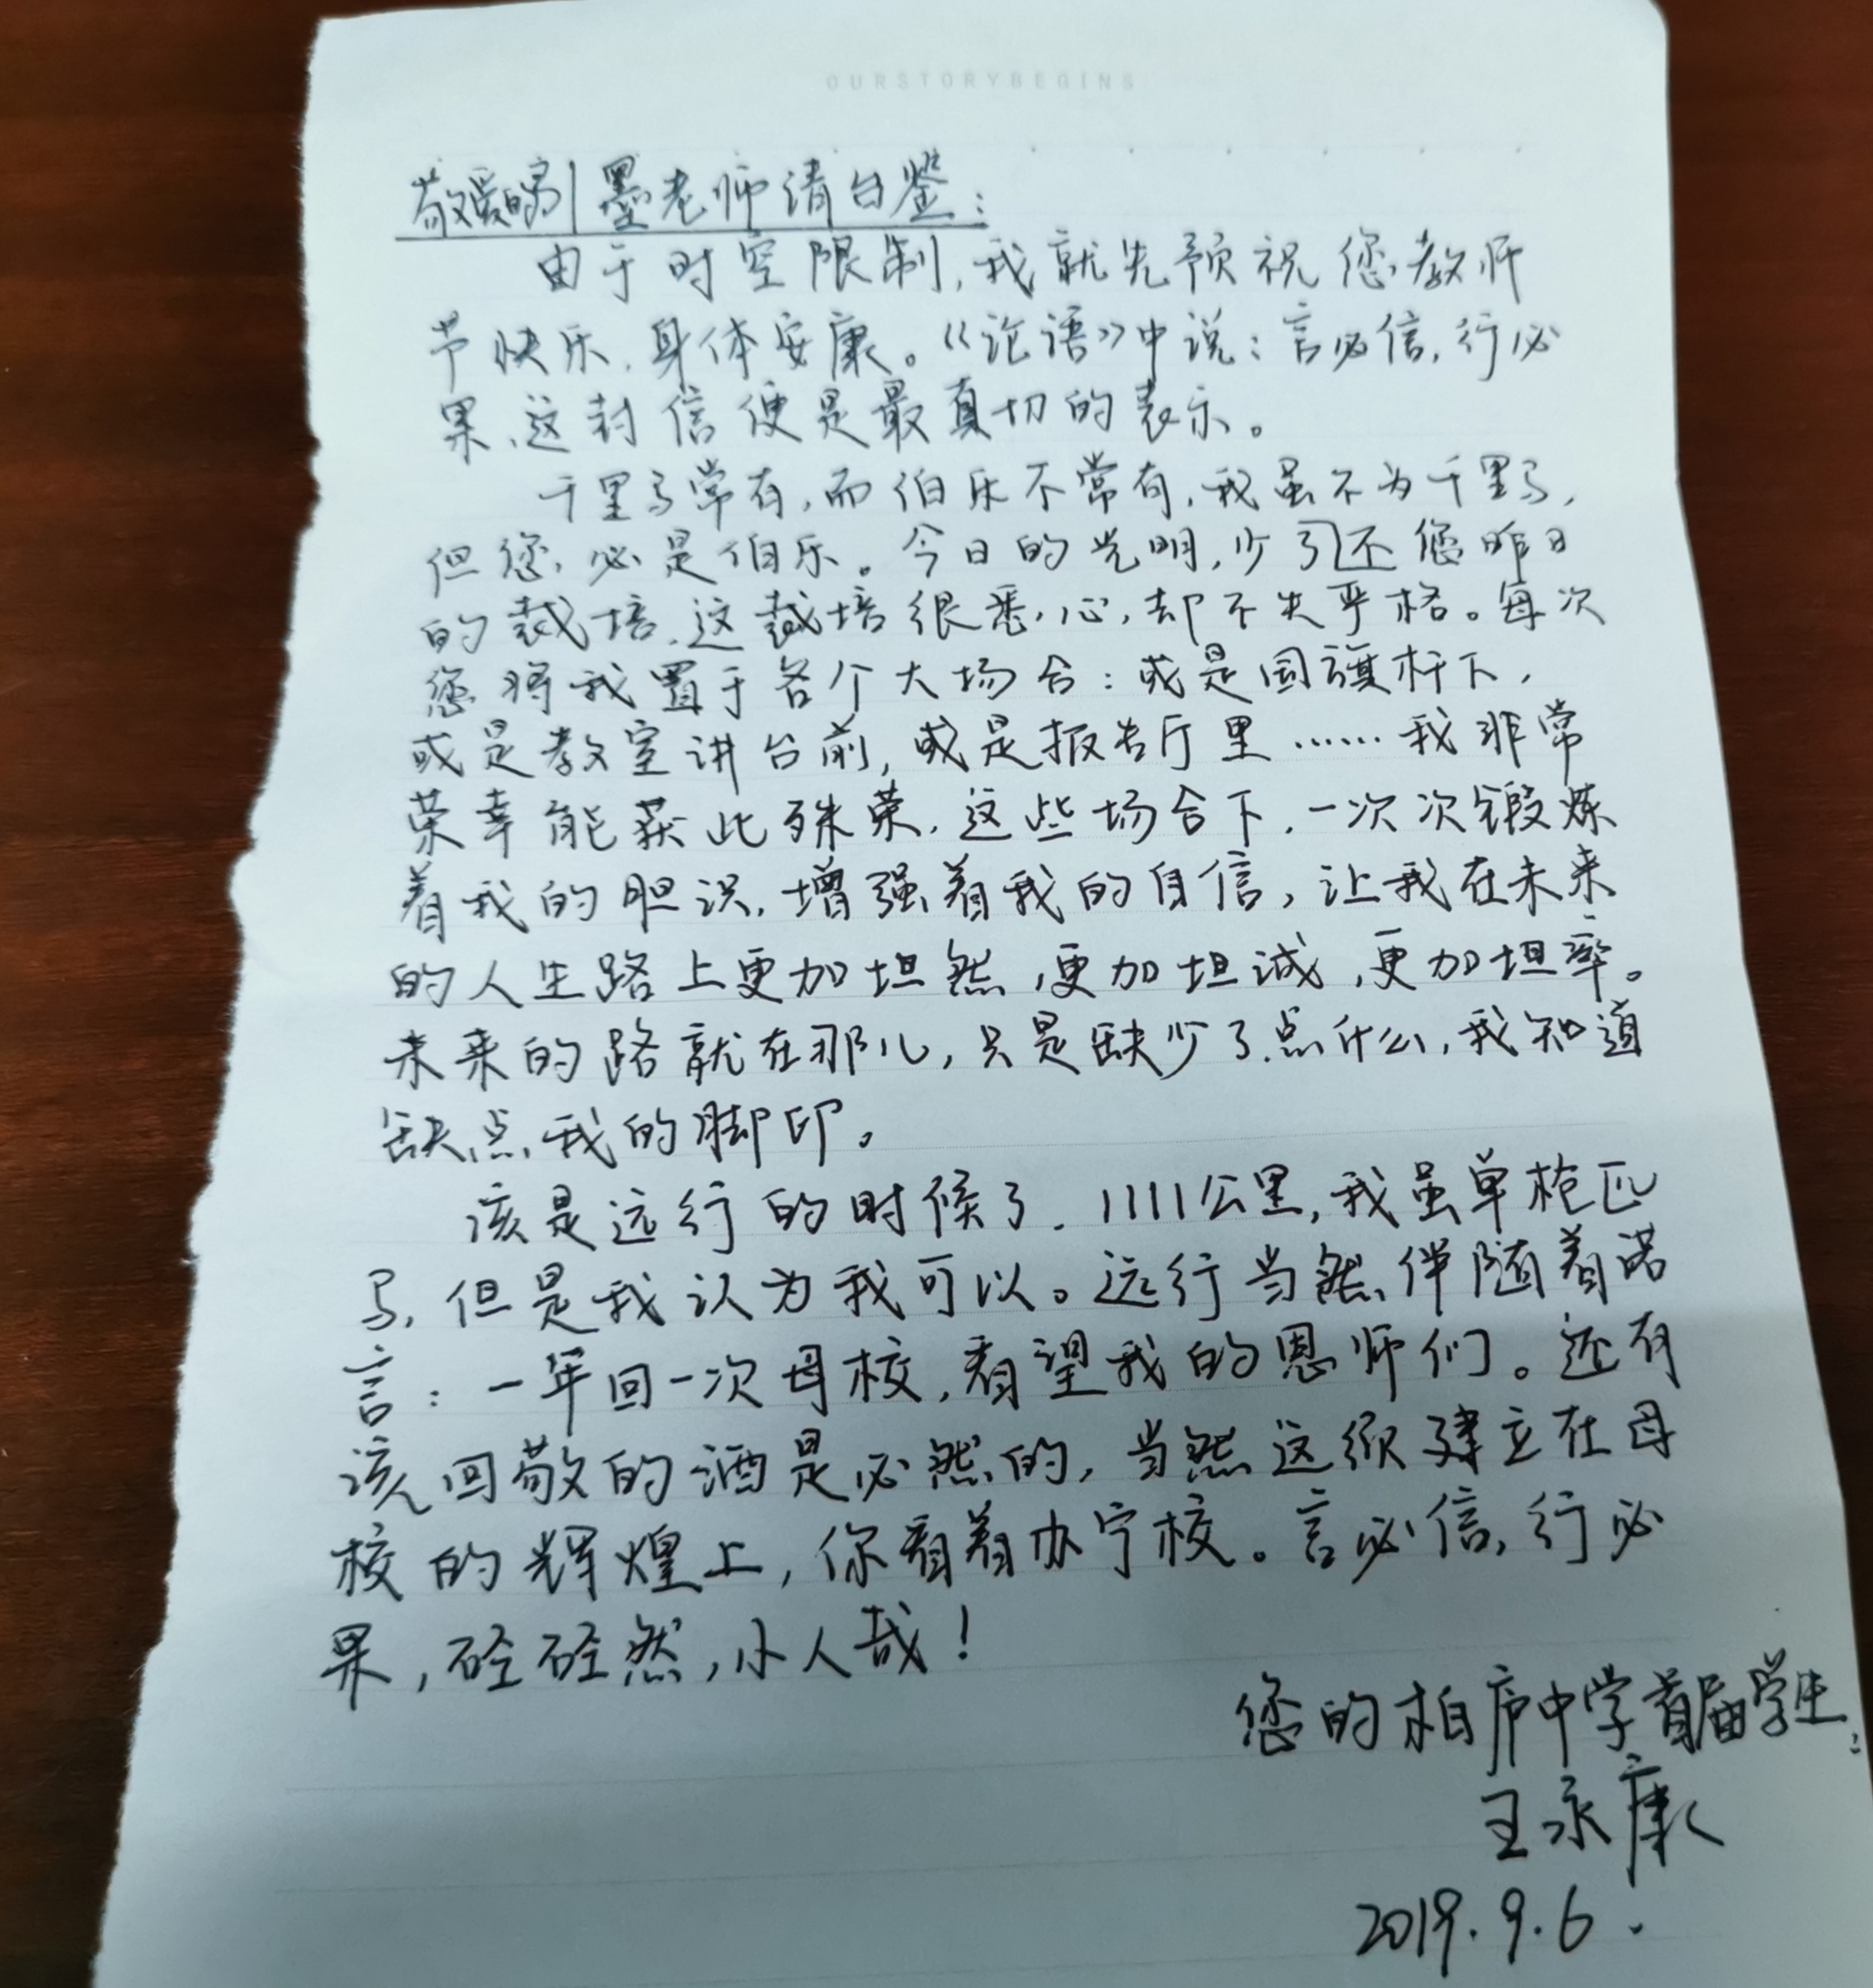 OURSTORYBEGINS
敬爱的引墨老师请台鉴：
由于时空限制，我就先预祝您教师
节快乐，身体安康。《论语》中说：言必信，行必
果，这封信便是最真切的表示。
千里马常有，而伯乐不常有，我虽不为千里马，
但您，必是伯乐。今日的光明，少不了您昨日
的栽培，这栽培很悉心，却不失严格。每次
您将我置于各个大场合：或是国旗杆下，
或是教室讲台前，或是报告厅里……我非常
荣幸能获此殊荣，这些场合下，一次次锻炼
着我的胆识，增强着我的自信，让我在未来
的人生路上更加坦然，更加坦诚，更加坦率。
未来的路就在那儿，只是缺少了点什么，我知道
缺点我的脚印。
该是远行的时候了，1111公里，我虽单枪匹
马，但是我认为我可以。远行当然伴随着诺
言：一年回一次母校，看望我的恩师们。还有
该回敬的酒是必然的，当然这须建立在母
校的辉煌上，你看着办宁校。言必信，行必
果，硁硁然，小人哉！
您的柏庐中学首届学生：
王永康
2019.9.6.